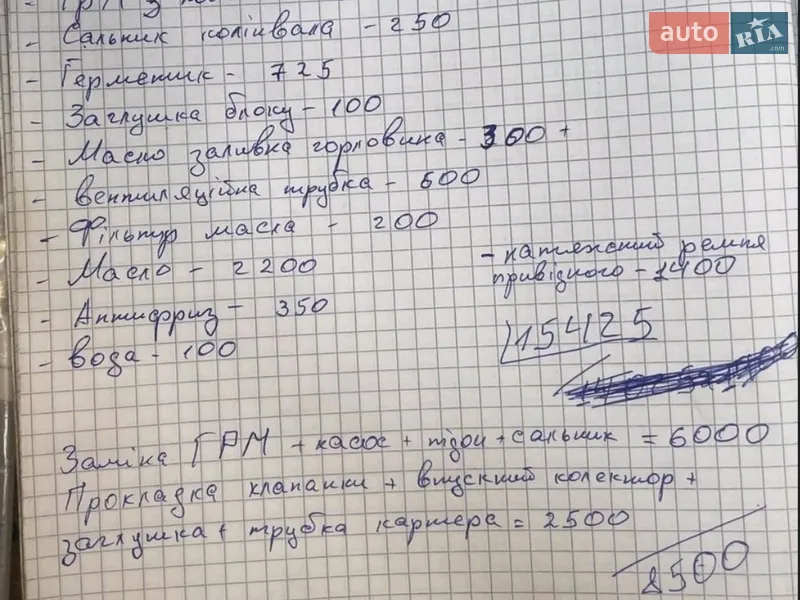 ГРМ з
- Сальник колінвала - 250
- Герметик - 725
- Заглушка блоку - 100
- Масло заливна горловина - 300 +
- Вентиляційна трубка - 600
- Фільтр масла - 200
- Масло - 2200
- Антифриз - 350
- Вода - 100
- натяжний ремня
привідного - 1400
15425
Заміна ГРМ + насос + підои + сальник = 6000
Прокладка клапанки + впускний колектор +
заглушка + трубка картера = 2500
8500
auto RIA .com